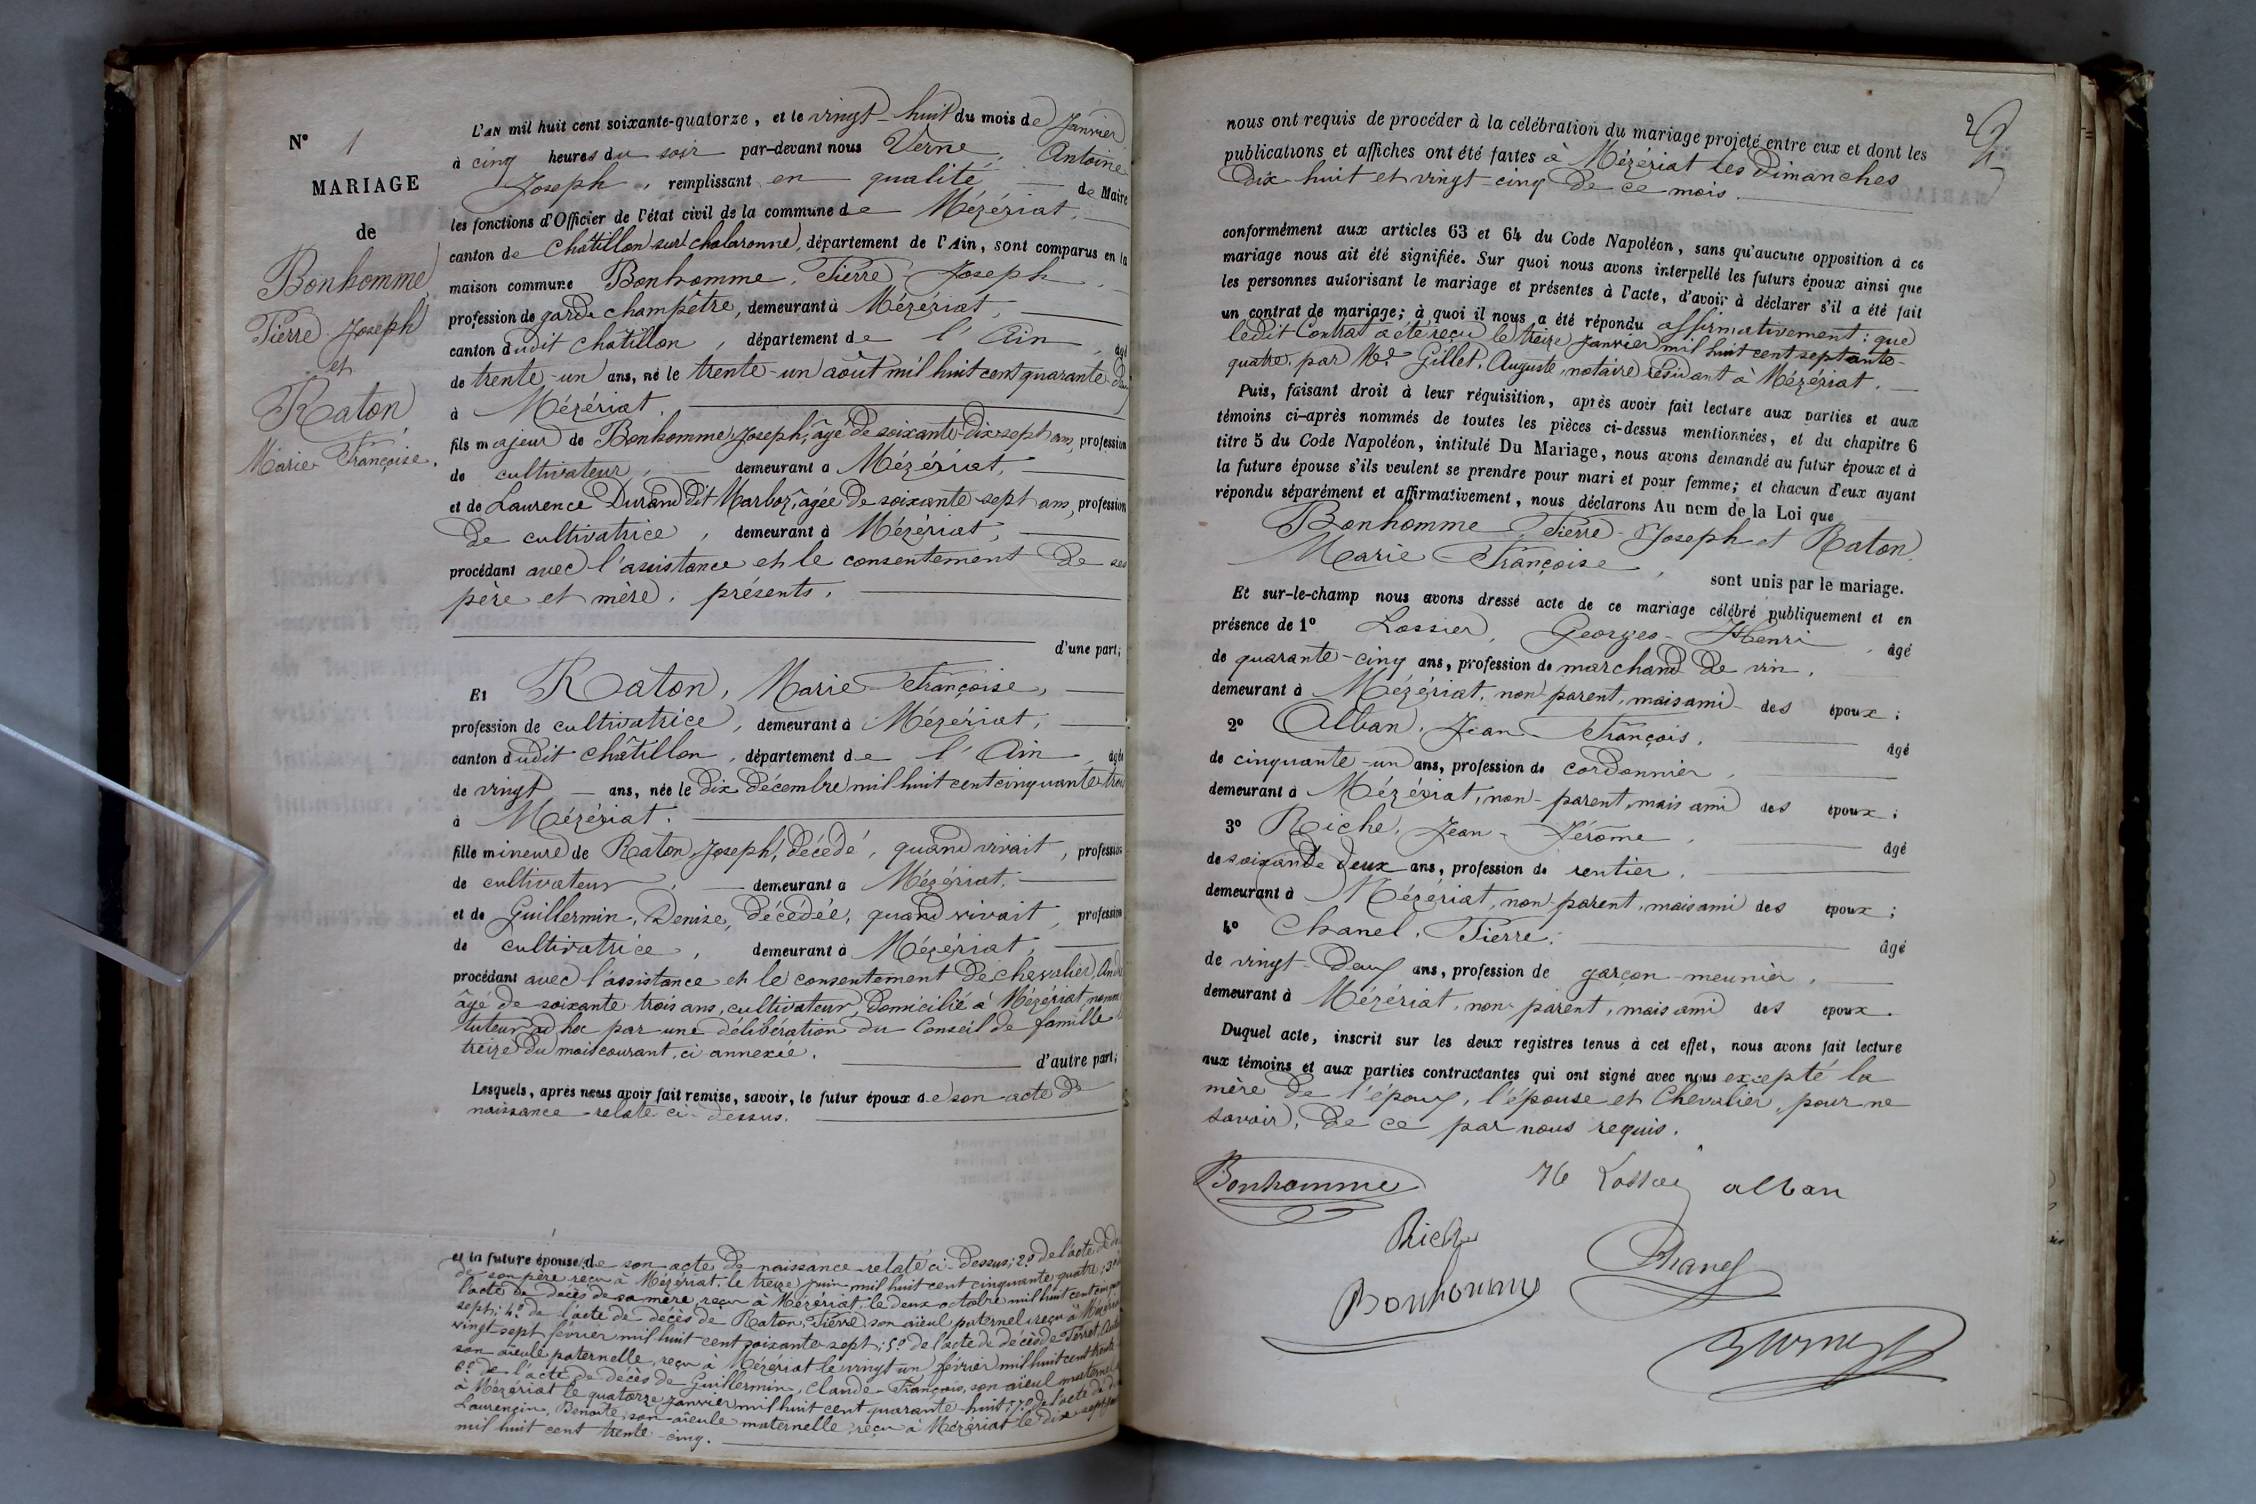 N° 1
MARIAGE
de
Bonhomme
Pierre Joseph
et
Raton,
Marie Françoise.
L'AN mil huit cent soixante-quatorze, et le vingt-huit du mois de Janvier
à cinq heures du soir par-devant nous Verne, Antoine
Joseph, remplissant en qualité de Maire
les fonctions d'Officier de l'état civil de la commune de Mézériat,
canton de Châtillon sur chalaronne, département de l'Ain, sont comparus en la
maison commune Bonhomme, Pierre Joseph,
profession de garde champêtre, demeurant à Mézériat,
canton dudit chatillon, département de l'Ain, âgé
de trente-un ans, né le trente-un août mil huit cent quarante-deux
à Mézériat.
fils majeur de Bonhomme Joseph, âgé de soixante-dix-sept ans, profession
de cultivateur, demeurant a Mézériat,
et de Laurence Durand dit Marboz, agée de soixante-sept ans, profession
de cultivatrice, demeurant à Mézériat,
procédant avec l'assistance et le consentement de ses
père et mère, présents.
d'une part;
Et Raton, Marie Françoise,
profession de cultivatrice, demeurant à Mézériat,
canton dudit châtillon, département de l'Ain, âgée
de vingt ans, née le dix décembre mil huit cent cinquante-trois
à Mézériat.
fille mineure de Raton, Joseph, décédé, quand vivait, profession
de cultivateur, demeurant a Mézériat,
et de Guillermin, Denise, décédée, quand vivait, profession
de cultivatrice, demeurant à Mézériat,
procédant avec l'assistance et le consentement de chevalier, André
âgé de soixante trois ans, cultivateur, domicilié à Mézériat, nommé
tuteur ad hoc par une délibération du Conseil de famille
treize du mois courant, ci annexée.
d'autre part;
Lesquels, après nous avoir fait remise, savoir, le futur époux de son acte de
naissance relaté ci-dessus.
et la future épouse de son acte de naissance relaté ci-dessus; 2° de l'acte de
de son père reçu à Mézériat, le treize juin mil huit cent cinquante quatre; 3°
l'acte de décès de sa mère reçu à Mézériat, le deux octobre mil huit cent
sept; 4° de l'acte de décès de Raton, Pierre, son aïeul paternel, reçu à Mézériat
vingt-sept février mil huit cent soixante sept; 5° de l'acte de décès de
son aïeule paternelle, reçu à Mézériat le vingt un février mil huit cent trente
6° de l'acte de décès de Guillermin, Claude-François, son aïeul maternel
à Mézériat le quatorze Janvier mil huit cent quarante-huit; 7° de l'acte de
Laurençin, Benoite, son aïeule maternelle, reçu à Mézériat le dix sept
mil huit cent trente-cinq.
2
nous ont requis de procéder à la célébration du mariage projeté entre eux et dont les
publications et affiches ont été faites à Mézériat les Dimanches
dix-huit et vingt-cinq de ce mois.
conformément aux articles 63 et 64 du Code Napoléon, sans qu'aucune opposition à ce
mariage nous ait été signifiée. Sur quoi nous avons interpellé les futurs époux ainsi que
les personnes autorisant le mariage et présentes à l'acte, d'avoir à déclarer s'il a été fait
un contrat de mariage; à quoi il nous a été répondu affirmativement: que
ledit Contrat a été reçu le treize Janvier mil huit cent septante-
quatre, par Me Gillet, Auguste, notaire résidant à Mézériat.
Puis, faisant droit à leur réquisition, après avoir fait lecture aux parties et aux
témoins ci-après nommés de toutes les pièces ci-dessus mentionnées, et du chapitre 6
titre 5 du Code Napoléon, intitulé Du Mariage, nous avons demandé au futur époux et à
la future épouse s'ils veulent se prendre pour mari et pour femme; et chacun d'eux ayant
répondu séparément et affirmativement, nous déclarons Au nom de la Loi que
Bonhomme, Pierre-Joseph et Raton,
Marie-Françoise, sont unis par le mariage.
Et sur-le-champ nous avons dressé acte de ce mariage célébré publiquement et en
présence de 1° Lossier, Georges-Henri, âgé
de quarante-cinq ans, profession de marchand de vin,
demeurant à Mézériat, non parent, mais ami des époux;
2° Alban, Jean-François, âgé
de cinquante-un ans, profession de cordonnier,
demeurant à Mézériat, non-parent, mais ami des époux;
3° Riche, Jean-Jérôme, âgé
de soixante deux ans, profession de rentier,
demeurant à Mézériat, non-parent, mais ami des époux;
4° Chanel, Pierre, âgé
de vingt-deux ans, profession de garçon-meunier,
demeurant à Mézériat, non-parent, mais ami des époux.
Duquel acte, inscrit sur les deux registres tenus à cet effet, nous avons fait lecture
aux témoins et aux parties contractantes qui ont signé avec nous excepté la
mère de l'époux, l'épouse et Chevalier, pour ne
savoir, de ce par nous requis.
Bonhomme
alban
Riche
Bonhomme
Chanel